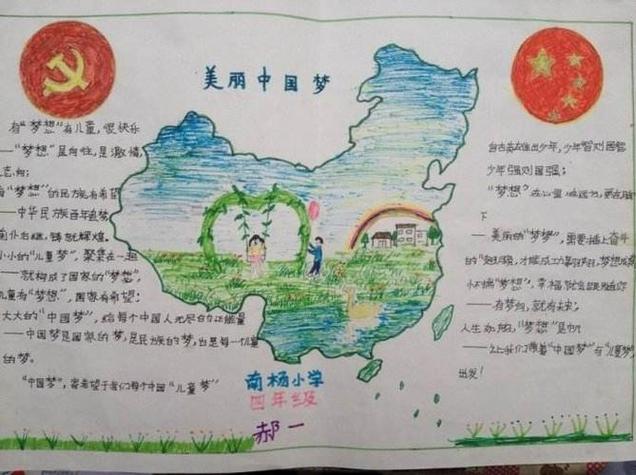 美丽中国梦
有“梦想”有儿童，很快乐
——“梦想”是向往，是激情，
是志向；
有“梦想”的民族有希望
——中华民族百年追梦
前仆后继，铸就辉煌。
小小的“儿童梦”，聚集在一起
——就构成了国家的“梦想”
儿童有“梦想”，国家有希望；
大大的“中国梦”，给每个中国人无尽的正能量
——中国梦是国家的梦，是民族的梦，也是每一个儿童
的梦。
“中国梦”，寄希望于我们每个中国“儿童梦”
自古英雄出少年，少年智则国智
少年强则国强；
“梦想”
下
——美丽的“梦想”，需要插上奋斗
的
——有梦想，就有未来；
人生
——让我们携着“中国梦”与“儿童梦”
出发！
南杨小学
四年级
郝一